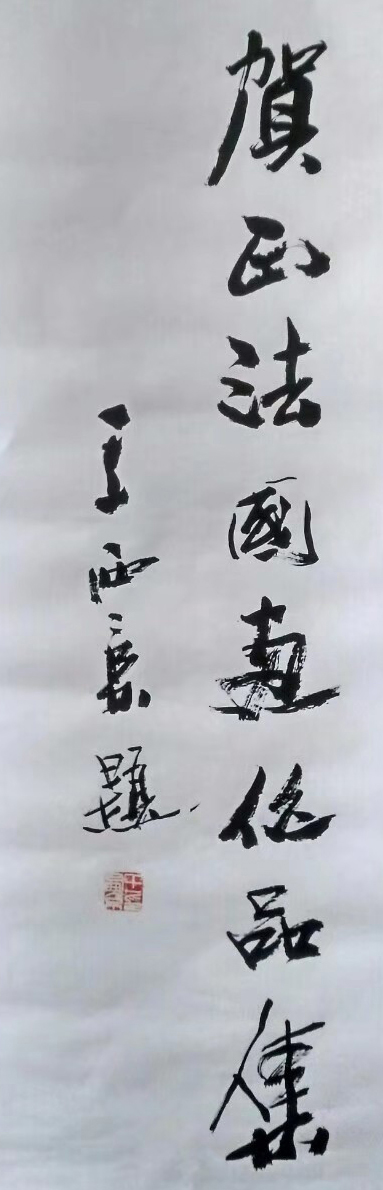 賀正法國畫作品集
王西京題